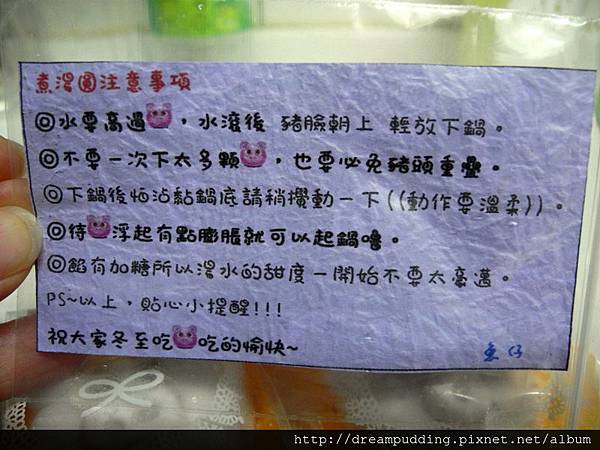 煮湯圓注意事項
◎水要高過，水滾後 豬臉朝上 輕放下鍋。
◎不要一次下太多顆，也要必免豬頭重疊。
◎下鍋後怕沾黏鍋底請稍攪動一下((動作要溫柔))。
◎待浮起有點膨脹就可以起鍋嚕。
◎餡有加糖所以湯水的甜度一開始不要太豪邁。
PS~以上，貼心小提醒!!!
祝大家冬至吃吃的愉快~
魚仔
http://dreampudding.pixnet.net/album